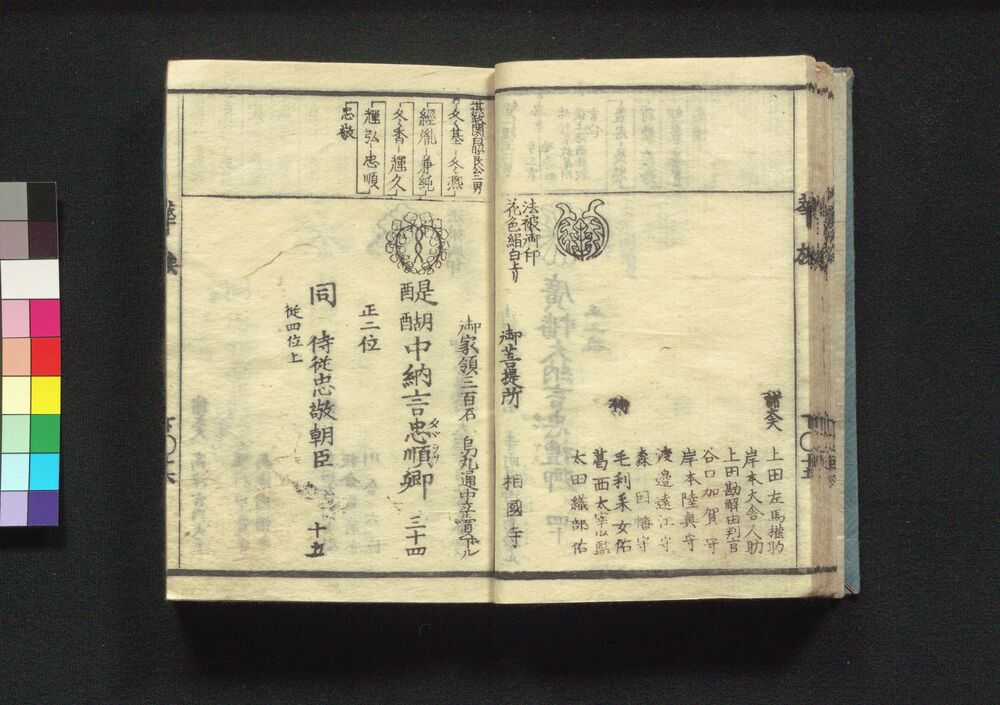 諸大夫
上田左馬權助
岸本大舎人助
上田勘解由判官
谷口加賀守
岸本陸奥守
渡邉遠江守
森因幡守
侍
毛利采女佑
葛西太宰少監
太田織部佑
法被御印
花色絹白上リ
御菩提所 相國寺
冬基－冬熈
經胤－兼純
冬香－輝久
輝弘－忠順
忠敬
御家領三百石 烏丸通中立賣下ル
醍醐中納言忠順卿 三十四
正二位
同 侍従忠敬朝臣 十五
従四位上